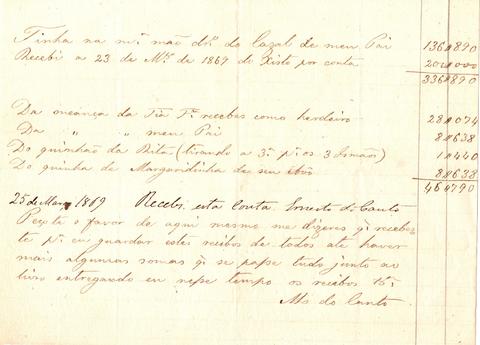 Tinha na mª mão drº do Cazal de meu Pai 136$890
Recebi a 23 de Mço de 1869 de Xisto por conta 200$000
336$890
Da meança da Tia Tª recebes como herdeiro 28$074
Da " " meu Pai 8$638
Do quinhão da Rita (tirando a 3ª pª os 3 Irmãos) 1$440
Do quinhã de Margaridinha de seu avô 8$638
46$790
25 de Março 1869 Recebi esta conta. Ernesto do Canto
Peço-te o favor de aqui mesmo me dizeres qe recebes-
te pª eu guardar estes recibos de todos até haver
mais algumas somas qe se passe tudo junto ao
livro entregando eu nesse tempo os recibos
do Canto